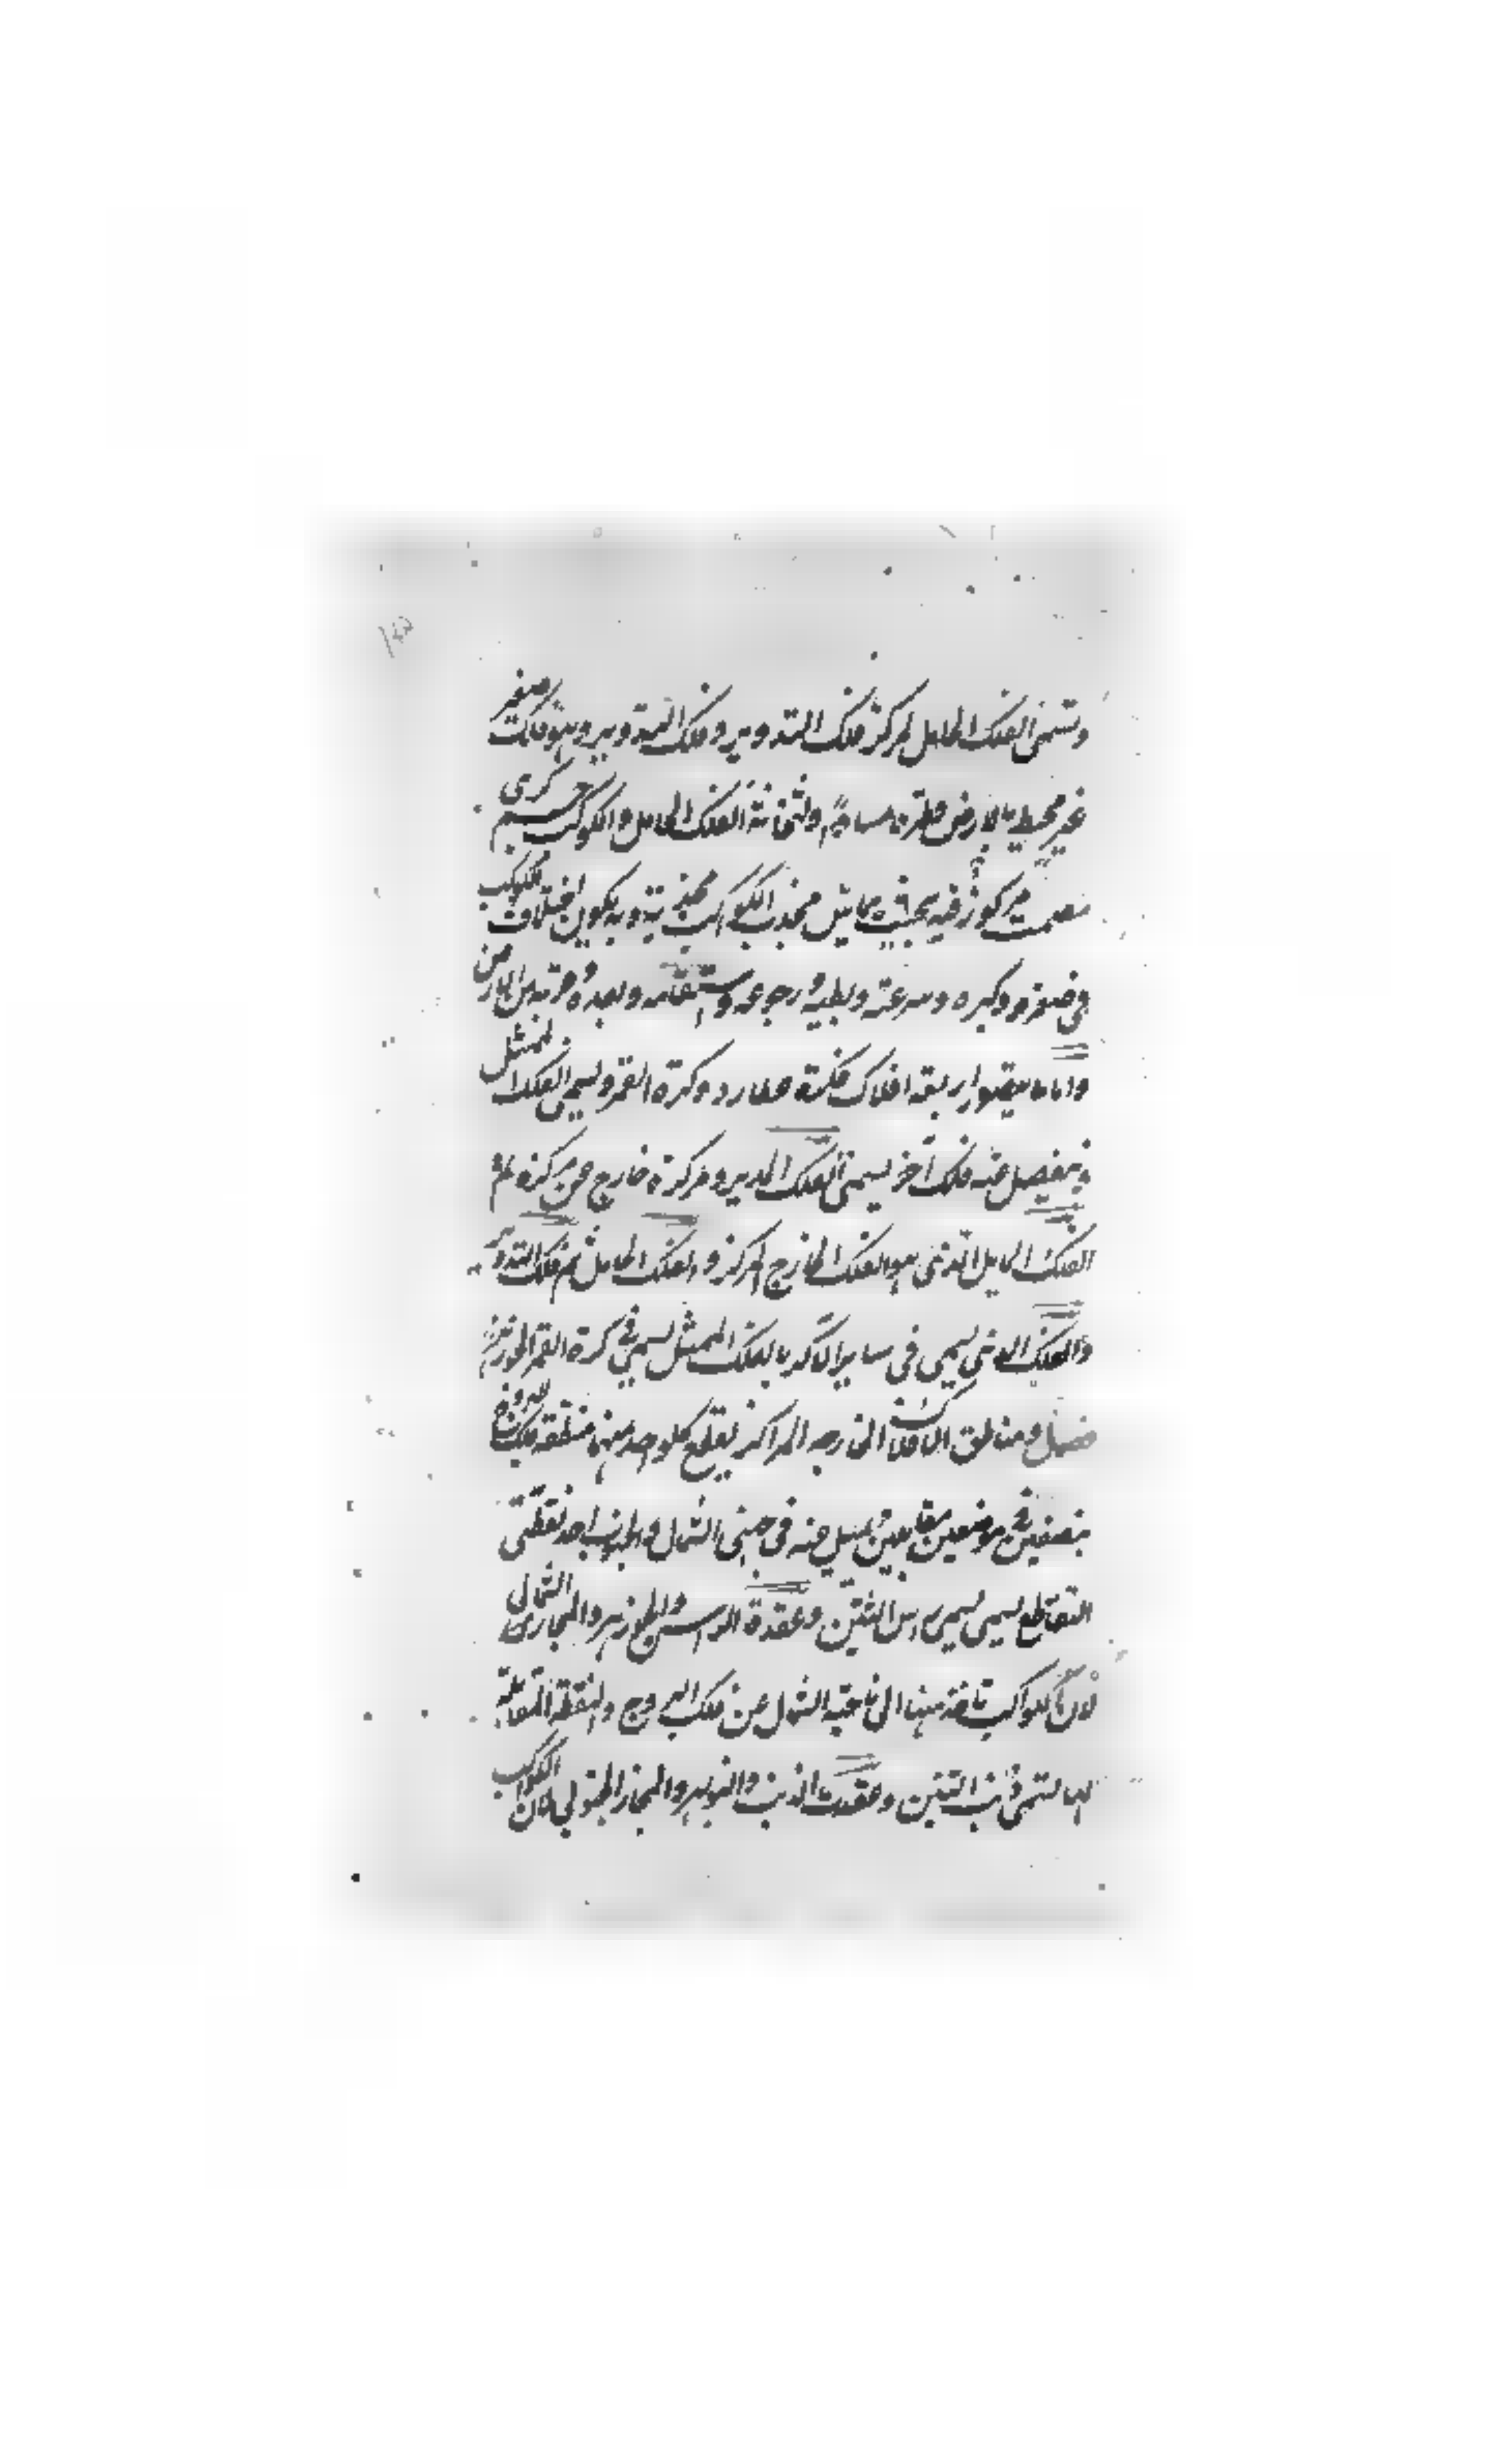 وتسمى الفلك الحامل لمركز فلك التدوير وفلك التدوير وهو فلك صغير
غير محيط بالارض قطره مساو لثخانة الفلك الحامل والكوكب جسم كرى
مصمت مركوز فيه بحيث يماس محدب الكوكب محدبته وبه يكون اختلاف الكوكب
فى صغره وكبره وسرعته وبطئه ورجوعه واستقامته وبعده وقربه من الارض
واما ما ينقسم اربعة افلاك فكرة عطارد وكرة القمر ويسمى الفلك الممثل
وينفصل عنه فلك آخر يسمى الفلك المدير ومركزه خارج عن مركزه ثم
الفلك المايل الذى هو الفلك الخارج المركز والفلك الحامل ثم فلك التدوير
والفلك الذى يسمى فى ساير الاكر بالفلك الممثل يسمى فى كرة القمر الجوزهر
فصل ومناطق الافلاك الخارجه المراكز يقطع كلواحد منها منطقه فلك البروج
بنصفين فى موضعين متقابلين ويميل عنه فى جنبى الشمال والجنوب احد نقطتى
التقاطع يسمى يسمى راس التنين وعقدة الراس والجوزهر والمجازى الشمالى
لان الكواكب تاخذ منها الى ناحية الشمال عن فلك البروج والنقطة المقابلة
لها تسمى ذنب التنين وعقدت الذنب والنوبهر والمجاز الجنوبى لان الكواكب